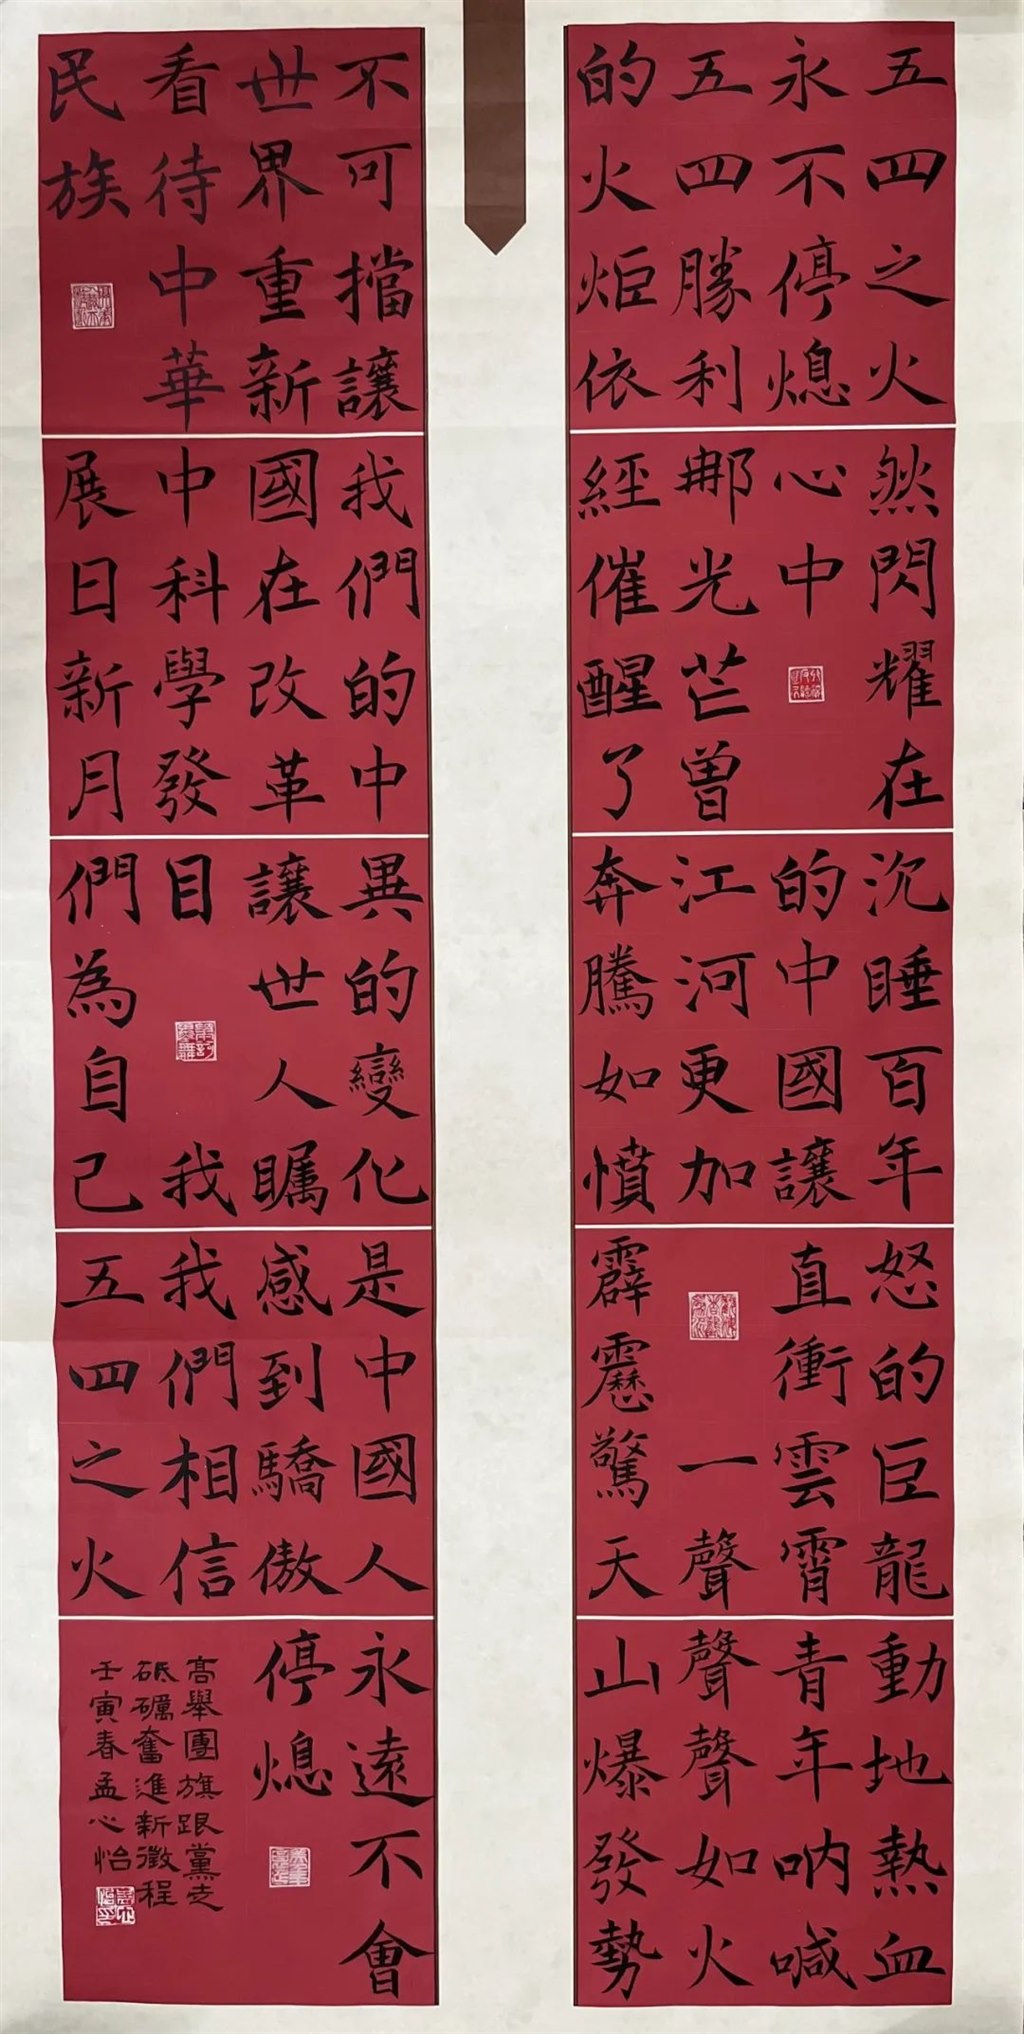 五四之火
永不停熄
五四勝利
的火炬依
然閃耀在
心中
那光芒曾
經催醒了
沉睡百年
的中國讓
江河更加
奔騰如憤
怒的巨龍
直衝雲霄
一聲
霹靂驚天
動地熱血
青年吶喊
聲聲如火
山爆發勢
不可擋讓
世界重新
看待中華
民族
我們的中
國在改革
中科學發
展日新月
異的變化
讓世人矚
目 我
們為自己
是中國人
感到驕傲
我們相信
五四之火
永遠不會
停熄
高舉團旗跟黨走
砥礪奮進新徵程
壬寅春孟心怡